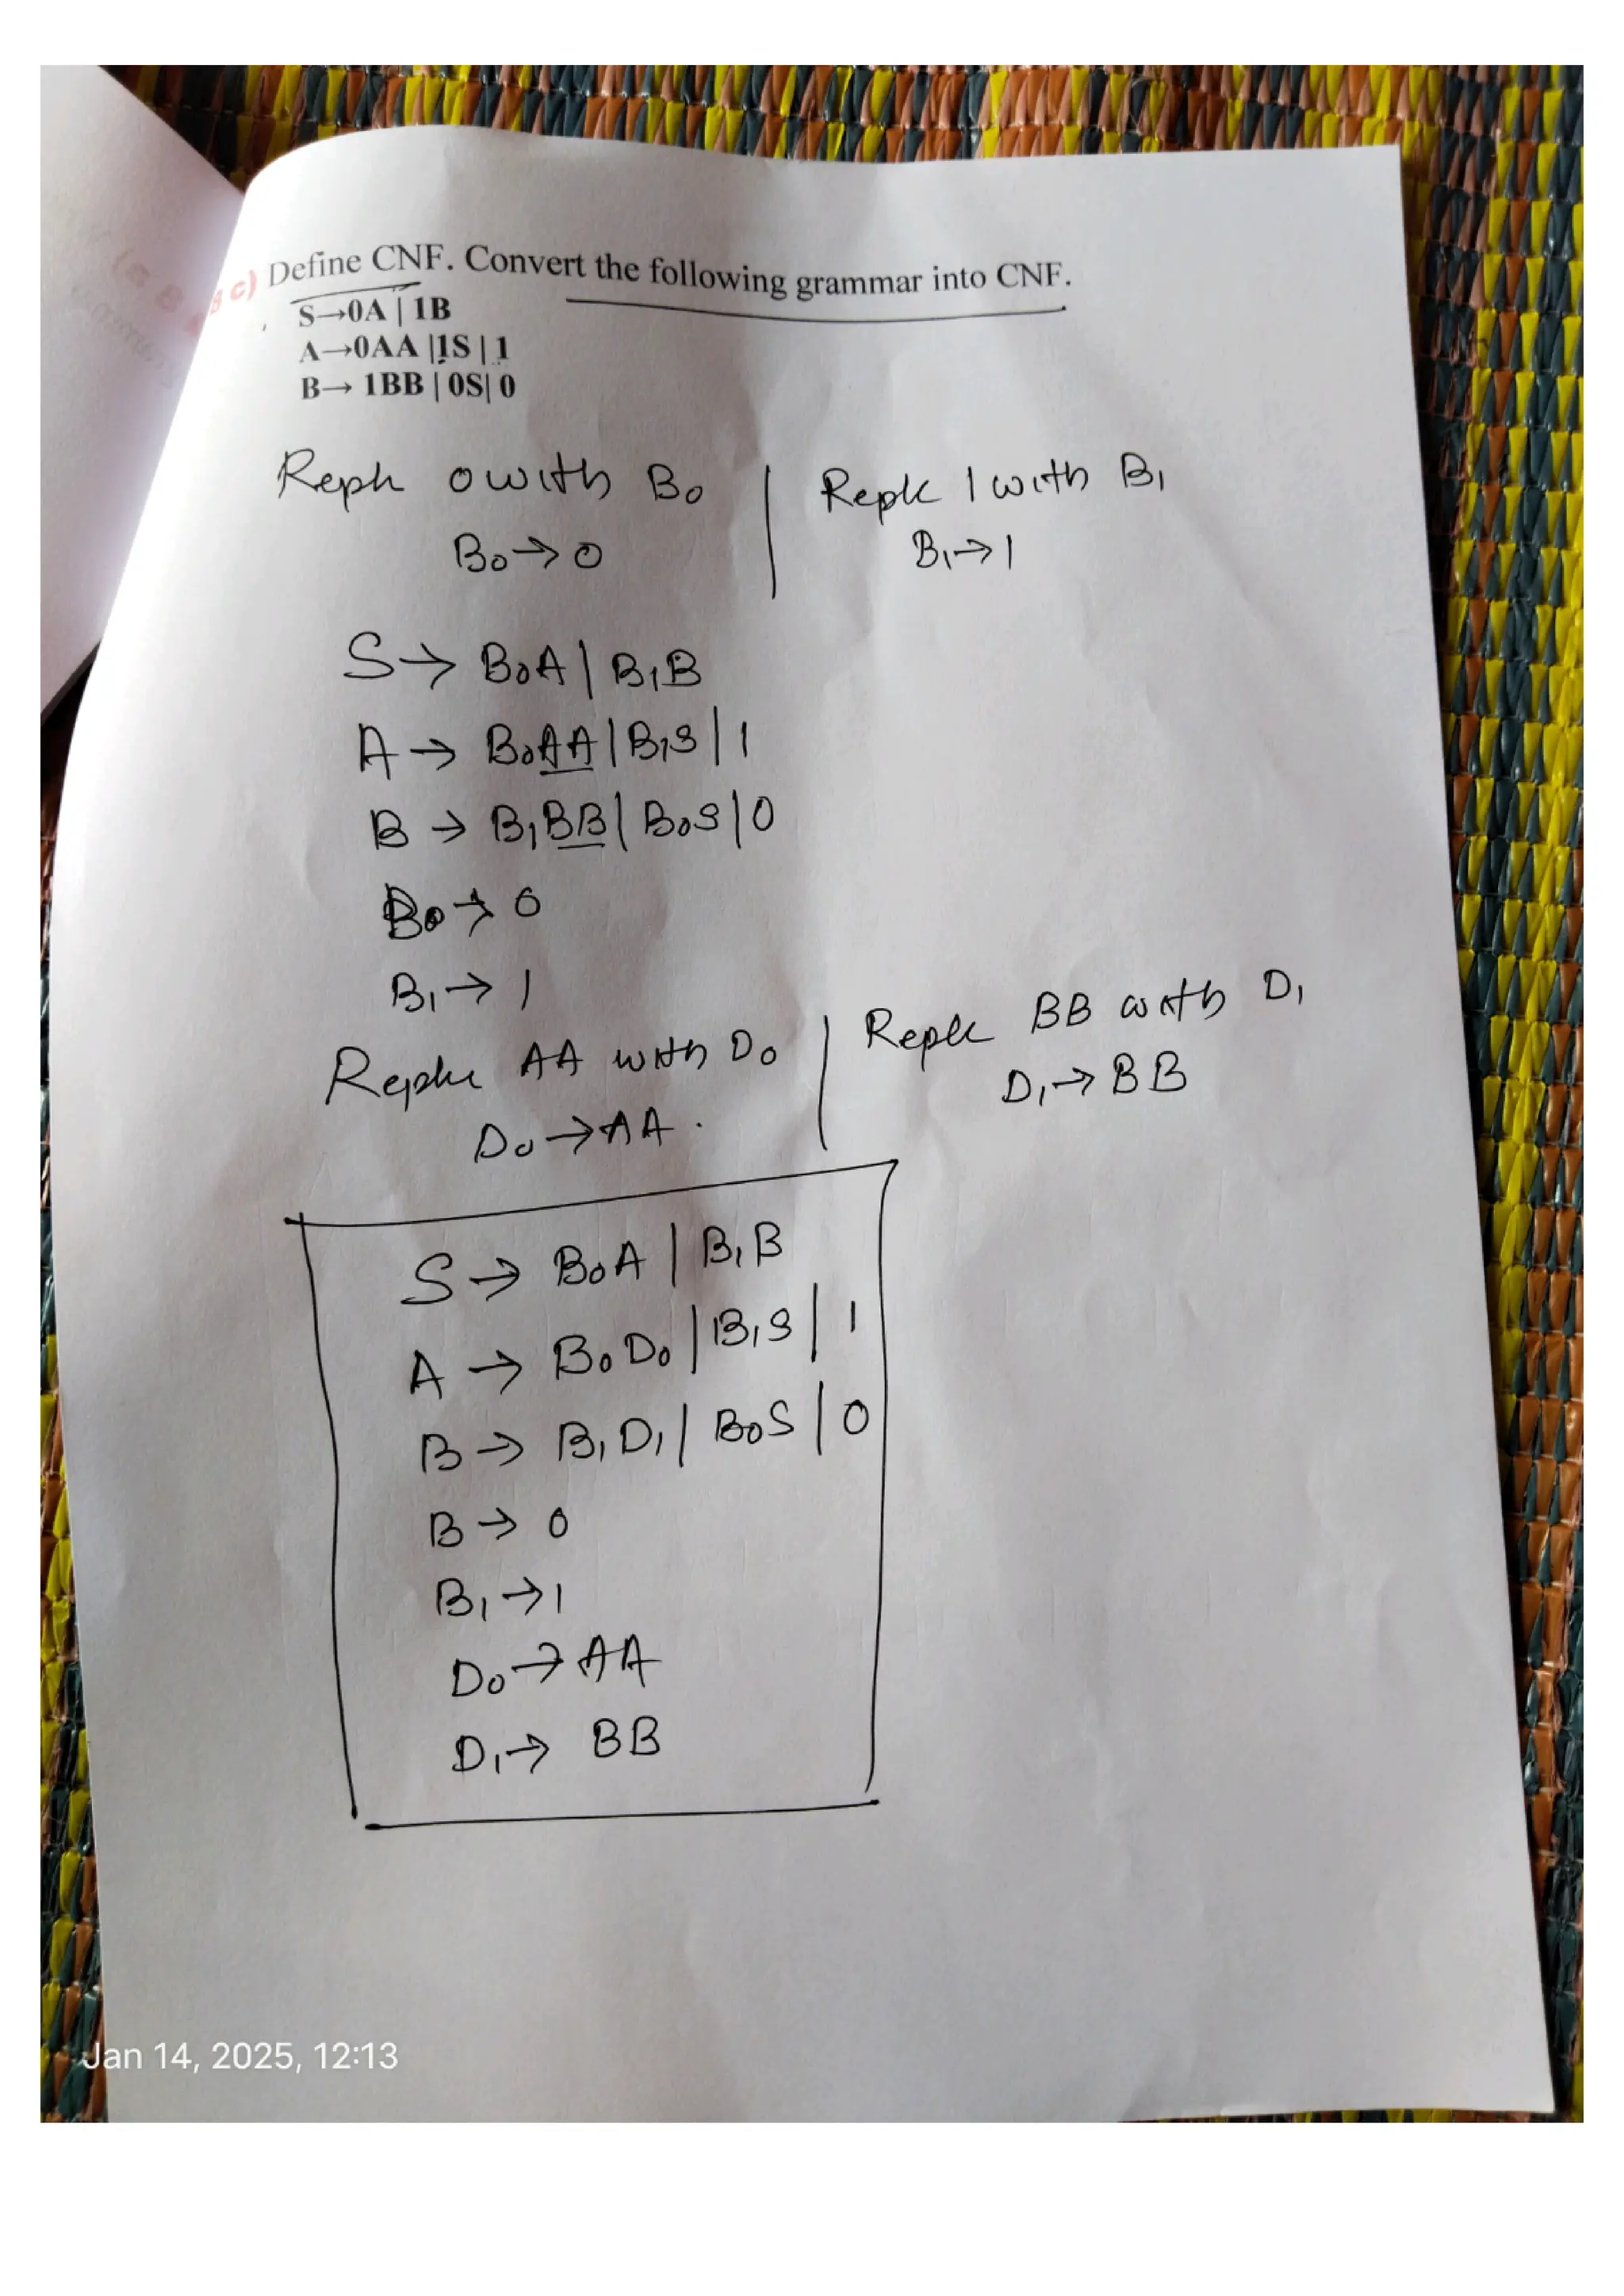 c) Define CNF. Convert the following grammar into CNF.
S→0A | 1B
A→0AA |1S | 1
B→ 1BB | 0S| 0
0 with B0 | 1 with B1
B0 → 0 | B1 → 1
S → B0A | B1B
A → B0AA | B1S | 1
B → B1BB | B0S | 0
B0 → 0
B1 → 1
AA with D0 | BB with D1
D0 → AA. | D1 → BB
S → B0A | B1B
A → B0D0 | B1S | 1
B → B1D1 | B0S | 0
B → 0
B1 → 1
D0 → AA
D1 → BB
Jan 14, 2025, 12:13